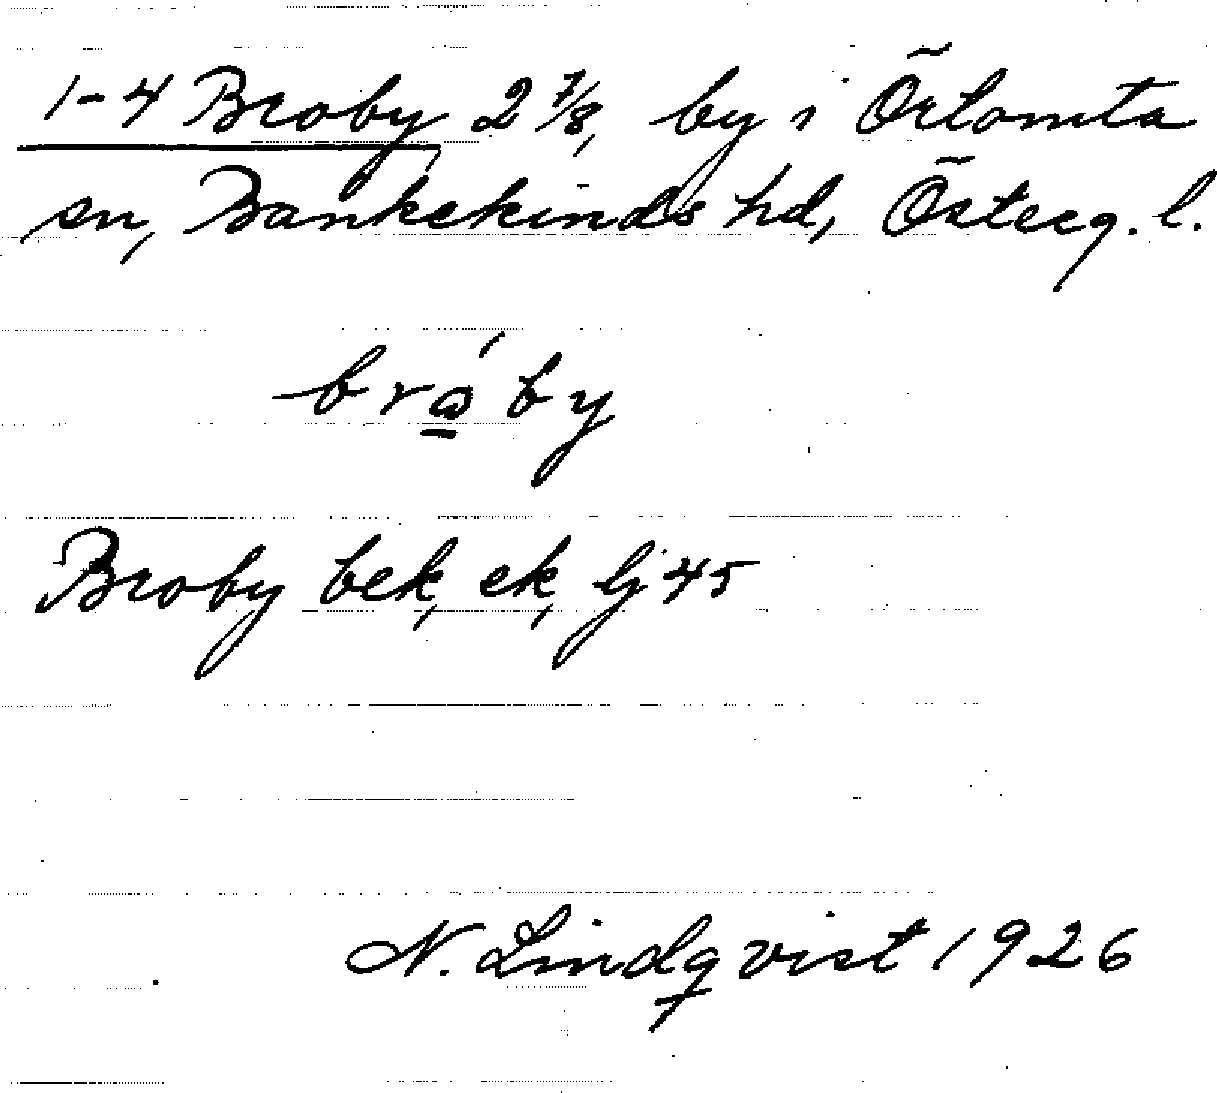 1-4 Broby 2 7/8, by i Örtomta
sn, Bankekinds hd, Österg. l.
brǻ̱by
Broby bek, ek, lj 45
N. Lindqvist 1926